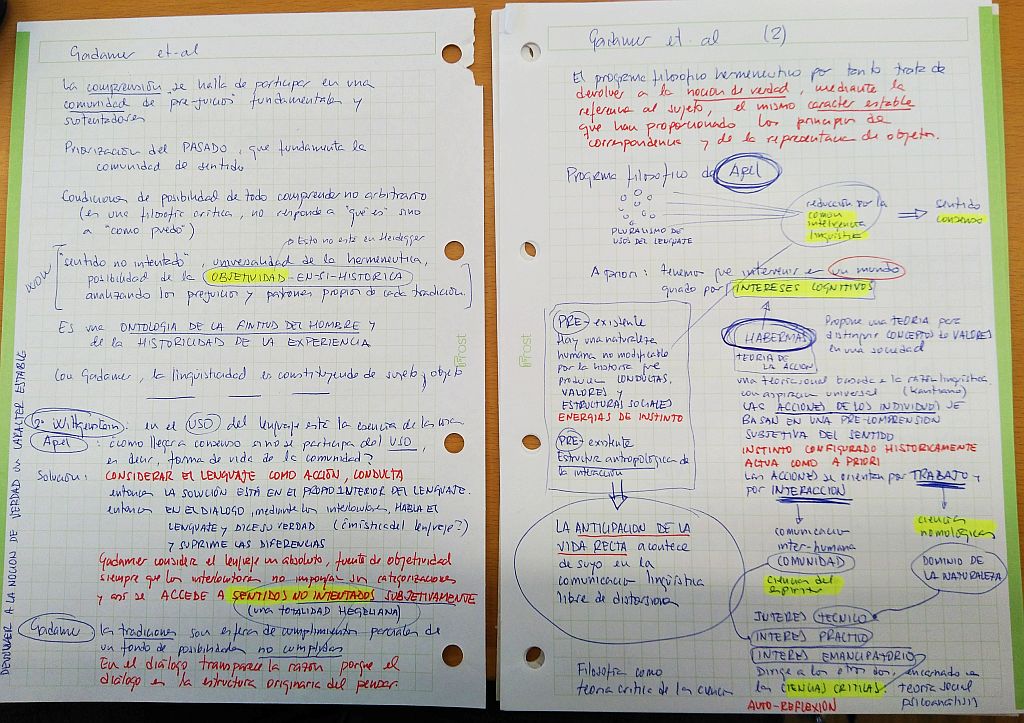 Gadamer et-al
La comprensión se halla de participar en una
comunidad de pre-juicios fundamentales y
sustentadores
Priorización del PASADO, que fundamenta la
comunidad de sentido
Condiciones de posibilidad de todo comprender no arbitrario
(es una filosofía crítica, no responde a "qué es" sino
a "como puedo")
Esto no está en Heidegger
WOW
"sentido no intentado", universalidad de la hermeneutica,
posibilidad de la OBJETIVIDAD-EN-SI-HISTORICA
analizando los prejuicios y patrones propios de cada tradición.
Es una ONTOLOGIA DE LA FINITUD DEL HOMBRE y
de la HISTORICIDAD DE LA EXPERIENCIA
Con Gadamer, la lingüisticidad es constituyendo de sujeto y objeto
2º Wittgenstein: en el USO del lenguaje está la esencia de la
Apel: ¿cómo llegar a consenso si no se participa del USO,
es decir, forma de vida de la comunidad?
Solución: CONSIDERAR EL LENGUAJE COMO ACCIÓN, CONDUCTA
entonces LA SOLUCIÓN ESTÁ EN EL PROPIO INTERIOR DEL LENGUAJE.
entonces EN EL DIALOGO, mediante los interlocutores, HABLA EL
LENGUAJE Y DICE SU VERDAD (¿mística del lenguaje?)
Y SUPRIME LAS DIFERENCIAS
Gadamer considera el lenguaje un absoluto, fuente de objetividad
siempre que los interlocutores no impongan sus categorizaciones
y así SE ACCEDE A SENTIDOS NO INTENTADOS SUBJETIVAMENTE
(una TOTALIDAD HEGELIANA)
Gadamer las tradiciones son esferas de cumplimientos parciales de
un fondo de posibilidades no cumplidas
En el diálogo transparece la razón porque el
diálogo es la estructura originaria del pensar.
DEVOLVER A LA NOCION DE VERDAD UN CARÁCTER ESTABLE
Gadamer et al (2)
El programa filosofico hermeneutico por tanto trata de
devolver a la noción de verdad, mediante la
referencia al sujeto, el mismo carácter estable
que han proporcionado los principios de
correspondencia y de la representación de objetos.
Programa filosofico de Apel
PLURALISMO DE
USOS DEL LENGUAJE
reducción por la
común
inteligencia
lingüística
sentido
consenso
A priori: tenemos que intervenir en un mundo
guiado por INTERESES COGNITIVOS
PRE-existente
Hay una naturaleza
humana no modificable
por la historia que
produce CONDUCTAS,
VALORES y
ESTRUCTURAS SOCIALES
ENERGIAS DE INSTINTO
PRE-existente
Estructura antropológica de
la interacción
LA ANTICIPACION DE LA
VIDA RECTA acontece
de suyo en la
comunicación lingüística
libre de distorsiones
Filosofia como
teoria critica de las ciencias
HABERMAS
TEORIA DE
LA ACCION
Propone una TEORIA para
distinguir CONCEPTOS de VALORES
en una sociedad
una teoría social basada en la razón lingüística
con aspiración universal (kantiano)
LAS ACCIONES DE LOS INDIVIDUOS SE
BASAN EN UNA PRE-COMPRENSION
SUBJETIVA DEL SENTIDO
INSTINTO CONFIGURADO HISTORICAMENTE
ACTUA COMO A PRIORI
LAS ACCIONES se orientan por TRABAJO y
por INTERACCION
comunicacion
inter-humana
COMUNIDAD
ciencias del
espíritu
ciencias
nomológicas
DOMINIO DE
LA NATURALEZA
INTERES TECNICO
INTERES PRACTICO
INTERES EMANCIPATORIO
Dirige a los otros dos, encarnado en
las CIENCIAS CRITICAS: teoría social
psicoanálisis
AUTO-REFLEXION